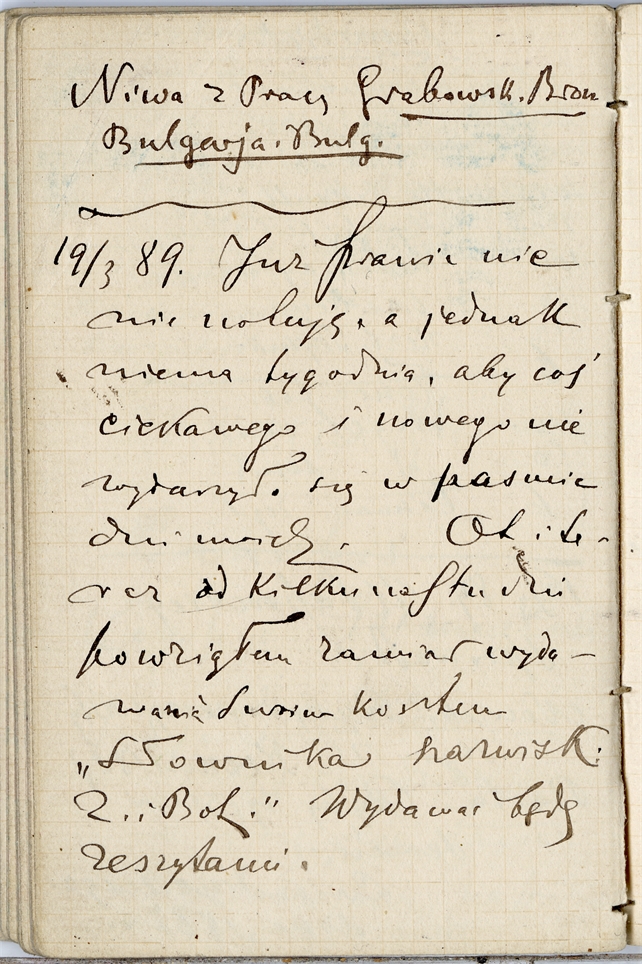 Niwa z Pracy Grabowsk. Bron
Bulgarja. Bulg.
19/3 89. Już prawie nie
nie notuję, a jednak
niema tygodnia, aby coś
ciekawego i nowego nie
wydarzył. się w paśmie
dni moich. Ot i te-
raz od kilkunastu dni
powziąłem zamiar wyda-
wania swoim kosztem
„Słownika nazwisk
Z. i Bot." Wydawać będę
zeszytami.